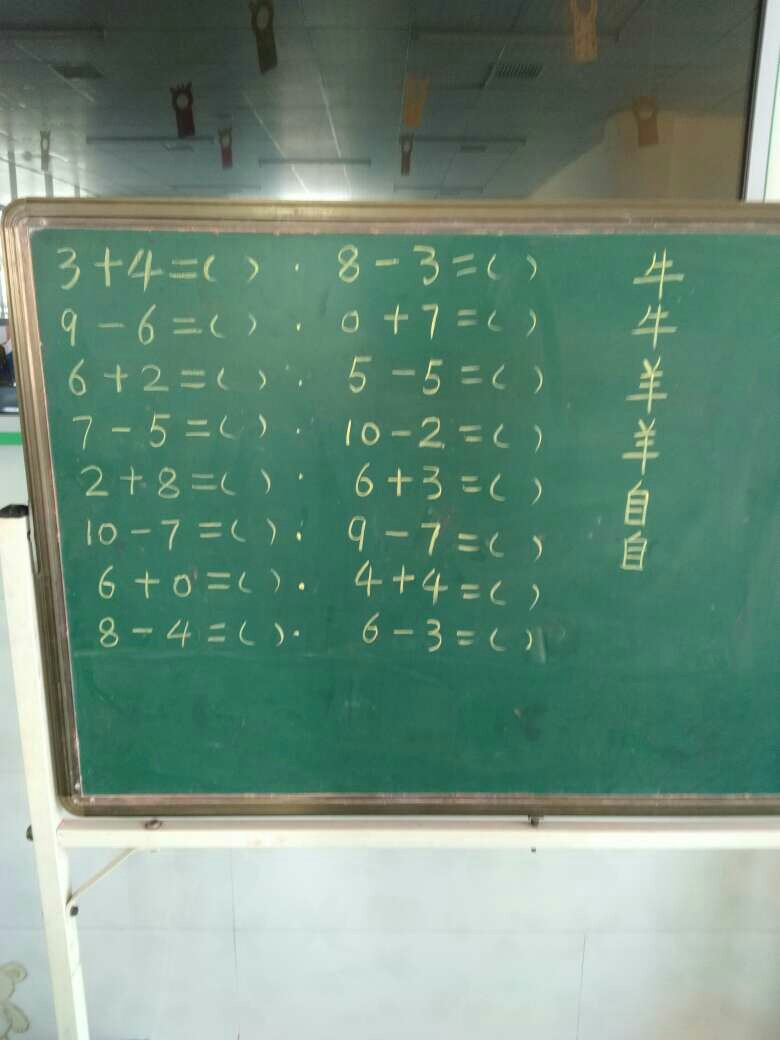 3+4=( ). 8-3=( ) 牛
9-6=( ). 0+7=( ) 牛
6+2=( ). 5-5=( ) 羊
7-5=( ). 10-2=( ) 羊
2+8=( ). 6+3=( ) 自
10-7=( ). 9-7=( ) 自
6+0=( ). 4+4=( )
8-4=( ). 6-3=( )